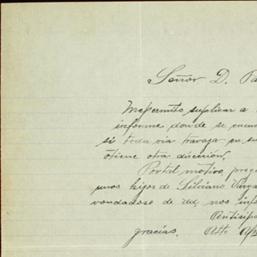 Señor D. Pa
Me permito suplicar a
informe donde se encuen
si toda via travaja en su
otiene otra direcion.
Portal motivo, preg
unos hijos de Silviano Varga
vondadoso de uz, nos inf
Anticipo
gracias. Atto. Af